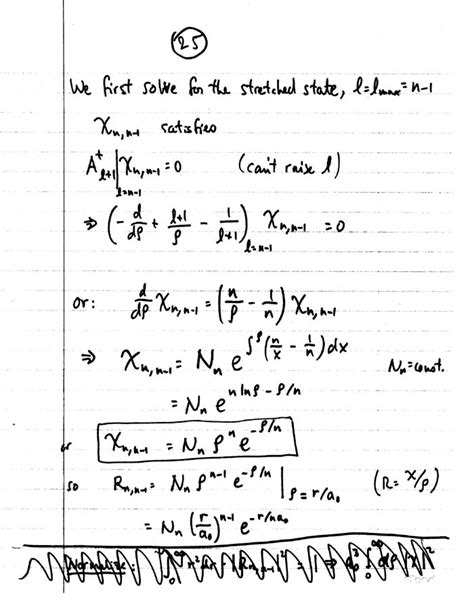 25
We first solve for the stretched state, l = l_max = n-1
χ_{n,n-1} satisfies
A^+_{l+1}|_{l=n-1} χ_{n,n-1} = 0 (can't raise l)
⇒ (-d/dρ + (l+1)/ρ - 1/(l+1))_{l=n-1} χ_{n,n-1} = 0
or: d/dρ χ_{n,n-1} = (n/ρ - 1/n) χ_{n,n-1}
⇒ χ_{n,n-1} = N_n e^{∫^ρ (n/x - 1/n) dx} N_n = const.
= N_n e^{n ln ρ - ρ/n}
or χ_{n,n-1} = N_n ρ^n e^{-ρ/n}
so R_{n,n-1} = N_n ρ^{n-1} e^{-ρ/n} |_{ρ = r/a_0} (R = χ/ρ)
= N_n (r/a_0)^{n-1} e^{-r/na_0}
Normalize: